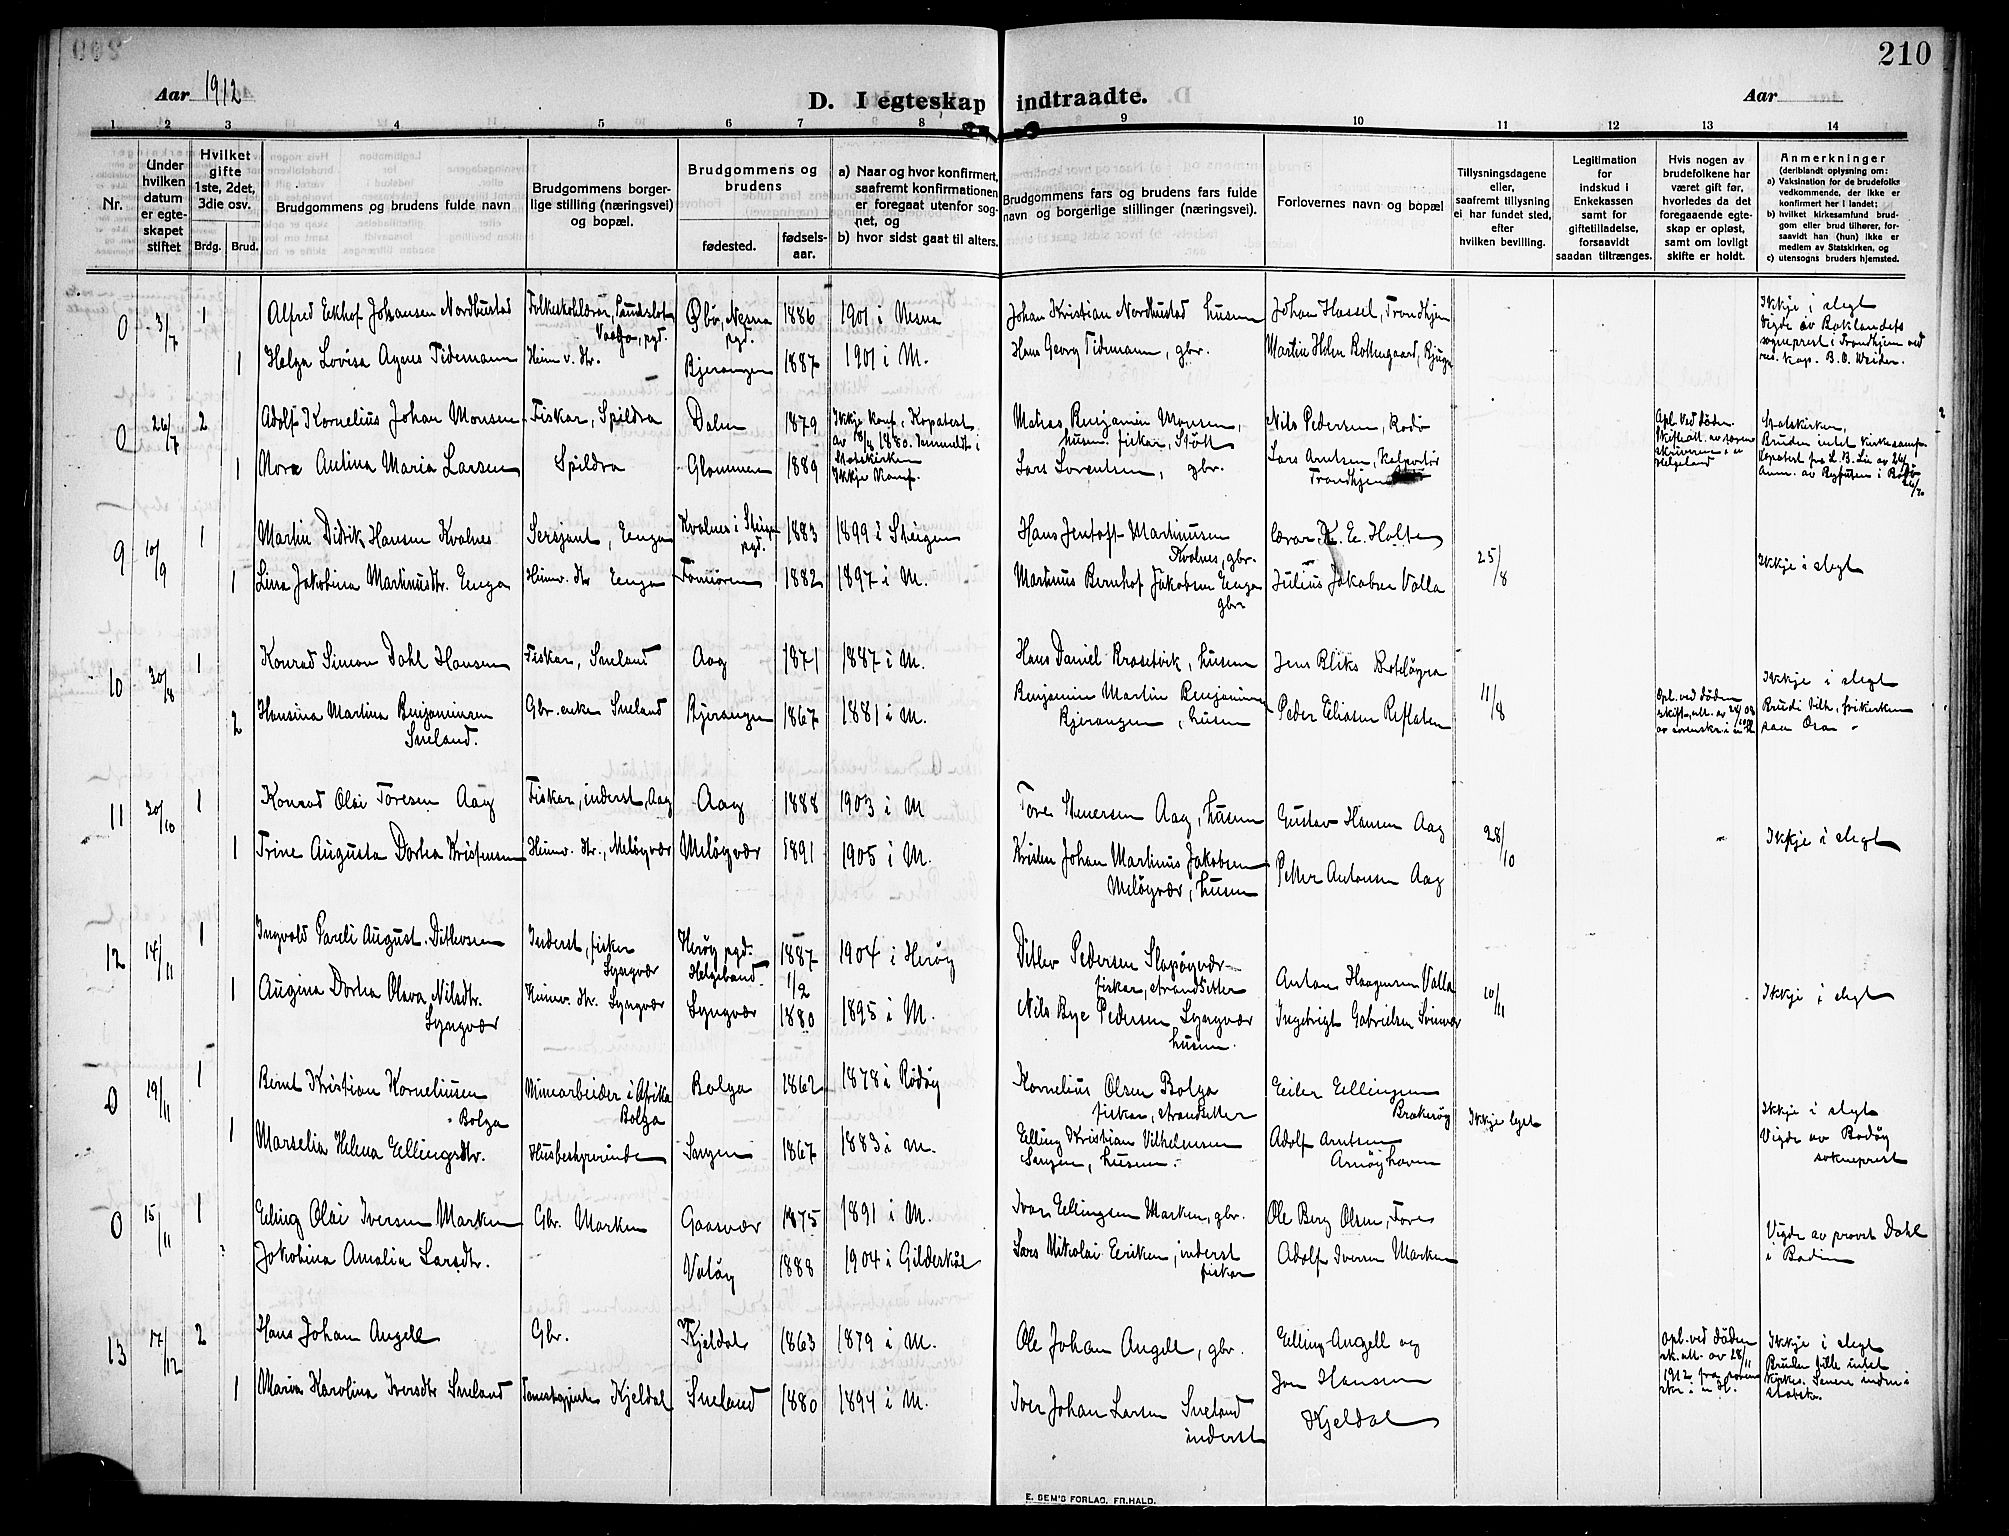 210
Aar 1912
D. I egteskap indtraadte.
Aar
1 2 3 4 5 6 7 8 9 10 11 12 13 14
Nr.
Under hvilken datum er egteskapet stiftet
Hvilket gifte 1ste, 2det, 3die osv.
Brdg. Brud.
Brudgommens og brudens fulde navn
Brudgommens borgerlige stilling (næringsvei) og bopæl.
Brudgommens og brudens
fødested.
fødselsaar.
a) Naar og hvor konfirmert, saafremt konfirmationen er foregaat utenfor sognet, og
b) hvor sidst gaat til alters.
Brudgommens fars og brudens fars fulde navn og borgerlige stillinger (næringsvei).
Forlovernes navn og bopæl
Tillysningsdagene eller, saafremt tillysning ei har fundet sted, efter hvilken bevilling.
Legitimation for indskud i Enkekassen samt for giftetilladelse, forsaavidt saadan tiltrænges.
Hvis nogen av brudefolkene har været gift før, hvorledes da det foregaaende egteskap er opløst, samt om lovligt skifte er holdt.
Anmerkninger (deriblandt oplysning om:
a) Vaksination for de brudefolks vedkommende, der ikke er konfirmert her i landet;
b) hvilket kirkesamfund brudgom eller brud tilhører, forsaavidt han (hun) ikke er medlem av Statskirken, og
c) utensogns bruders hjemsted.
0 3/7 1 Alfred Ekhof Johansen Nordhustad Folkeskohlærar, Øbø, Nesna pgd. 1886 1901 i Nesna Johan Kristian Nordhustad husm Johan Hassel, Trondhjem Ikkje i slegt
Vigde av Baklandets sogneprest i Trondhjem ved res. kap. B. O. Weider.
1 Helga Lovisa Agnes Tidemann Heim v. dtr. Bjerangen 1887 1901 i M. Hans Georg Tidemann, gbr. Martin Holm
0 26/7 2 Adolf Kornelius Johan Monsen Fiskar, Spildra Dalen 1879 Ikkje konf. Matias Benjamin Monsen, husm. fiskar, Støtt Nils Pedersen, Rødø Opl. ved døden. Statskirken.
1 Nora Antina Maria Larsen Spildra Glommen 1889 Ikkje Konf. Lars Lorentsen, gbr. Lars Arntsen, Kolportør Trondhjem
9 10/9 1 Martin Didrik Hansen Kvalnes Sersjant, Enga Kvalnes i Steigen pgd. 1883 1899 i Steigen Hans Jentoft Martinusen Kvalnes, gbr. Lærar K. E. Holten 25/8 Ikkje i slegt
1 Lina Jakobina Martinusdtr. Enga Heimv. dtr Enga Fomoren 1882 1897 i M. Martinus Bernhof Jakobsen Enga gbr Julius Jakobsen Valla
10 30/8 1 Konrad Simon Dahl Hansen Fiskar, Sneland Aag 1871 1887 i M. Hans Daniel Krosetvik, husm Jens Bliks Boteløyra 11/8 Ikkje i slegt
2 Hansina Martina Benjaminsen Sneland. Gbr. enke Sneland Bjerangen 1867 1881 i M. Benjamin Martin Benjaminsen Bjerangen, husm Peder Eliasen Reflaten Opl. ved døden Brudi tilh. frikirken
11 20/10 1 Konrad Olai Toresen Aag Fiskar, inderst, Aag Aag 1888 1903 i M Tore Stenersen Aag, husm Gustav Hansen Aag 28/10 Ikkje i slegt
1 Trine Augusta Dortea Kristensen Heimv. dtr., Meløyvær Meløyvær 1891 1905 i M. Kristen Johan Martinus Jakobsen Meløyvær, husm Petter Antonsen Aag
12 14/11 1 Ingvald Pareli August Ditlevsen Inderst, fisker Lyngvær Herøy pgd. Helgeland. 1887 1/2 1904 i Herøy Ditlev Pedersen Slapøyvær fiskar, strandsitter Anton Haagensen Valla 10/11 Ikkje i slegt
1 Augina Dortea Olava Nilsdtr. Lyngvær Heimv. dtr. Lyngvær Lyngvær 1880 1895 i M. Nils Bye Pedersen Lyngvær husm. Ingebrigt Gabrielsen Svinvær
0 19/11 1 Bernt Kristian Korneliusen Bolga Minearbeider i Afrika Bolga Bolga 1862 1878 i Rødøy Kornelius Olsen Bolga fiskar, strandsitter Eiler Ellingsen Braksøy Ikkje lyst Ikkje i slegt
1 Marselia Helena Ellingsdtr. Husbestyrerinde Sørgen 1867 1883 i M. Elling Kristian Vilhelmsen Sørgen, husm. Adolf Arntsen Arnøyhaven Vigde av Bodøy sokneprest
0 15/11 1 Elling Olai Iversen Marken Gbr. Marken Gaasvær 1875 1891 i M. Ivar Ellingsen Marken, gbr. Ole Berg Olsen, Fore Vigde av provst Dahl i Bodin
Jakobina Amalia Larsdtr. Valøy 1888 1904 i Gildeskål Lars Nikolai Eriksen, inderst fiskar Adolf Iversen Marken
13 17/12 2 Hans Johan Angell Gbr. Kjeldal 1863 1879 i M. Ole Johan Angell, gbr. Elling Angell og Opl. ved døden sk. att. av 28/11 1912 fra Ikkje i slegt
1 Maria Karolina Iversdtr Sneland Kjeldal Sneland 1880 1894 i M. Iver Johan Larsen Sneland inderst Jon Hansen Kjeldal
E. SEM'S FORLAG, FR.HALD.